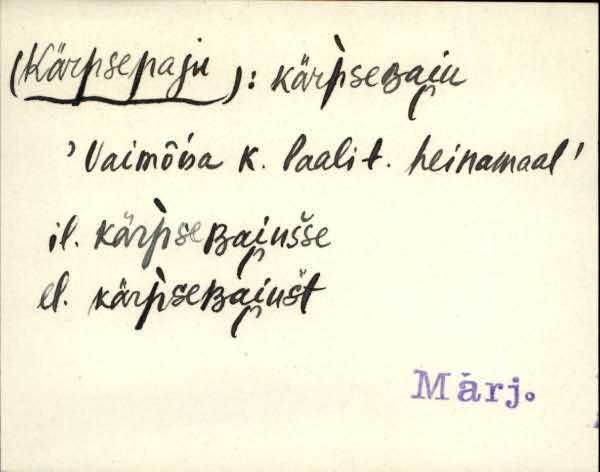 (Kärpsepaju): kärp̀seʙai̯u
'Vaimõisa k. Laalit. heinamaal'
il. kärp̀seʙai̯ušse
el. kärp̀seʙai̯ušt
Märj.